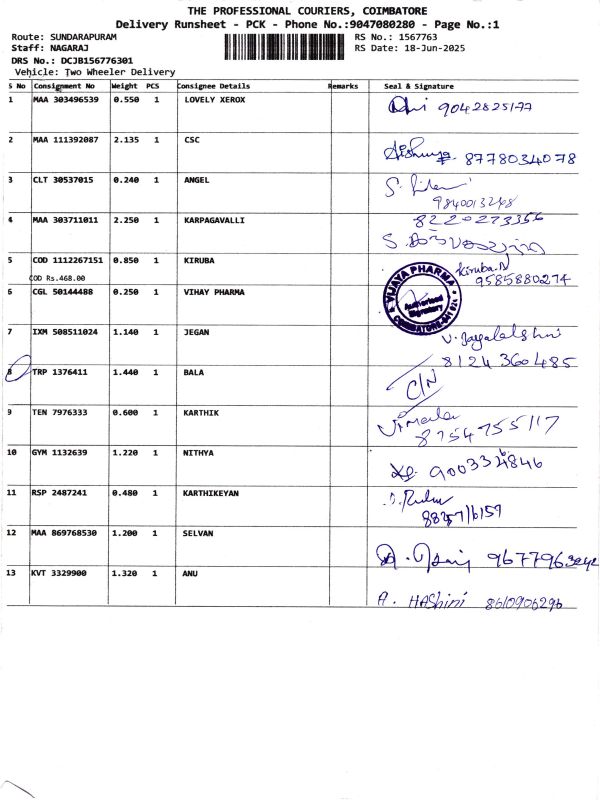 THE PROFESSIONAL COURIERS, COIMBATORE
Delivery Runsheet - PCK - Phone No.:9047080280 - Page No.:1
Route: SUNDARAPURAM
RS No.: 1567763
Staff: NAGARAJ
RS Date: 18-Jun-2025
DRS No.: DCJB156776301
Vehicle: Two Wheeler Delivery
S No Consignment No Weight PCS Consignee Details Remarks Seal & Signature
1 MAA 303496539 0.550 1 LOVELY XEROX 9042825177
2 MAA 111392087 2.135 1 CSC 8778034078
3 CLT 30537015 0.240 1 ANGEL S.
9840013248
4 MAA 303711011 2.250 1 KARPAGAVALLI 8220273356
S.
5 COD 1112267151 0.850 1 KIRUBA Kiruba.N
COD Rs.468.00 9585880274
6 CGL 50144488 0.250 1 VIHAY PHARMA VIJAYA PHARMA Authorised Signatory COIMBATORE-641 024
7 IXM 508511024 1.140 1 JEGAN V. Jayalakshmi
8124360485
8 TRP 1376411 1.440 1 BALA C/N
9 TEN 7976333 0.600 1 KARTHIK Vimala
8754755117
10 GYM 1132639 1.220 1 NITHYA
11 RSP 2487241 0.480 1 KARTHIKEYAN
12 MAA 869768530 1.200 1 SELVAN
13 KVT 3329900 1.320 1 ANU A. HAShini 8610906296